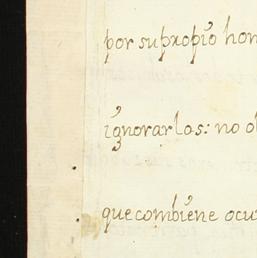 por su propio hon
ignorarlas: no ob
que combiene ocu